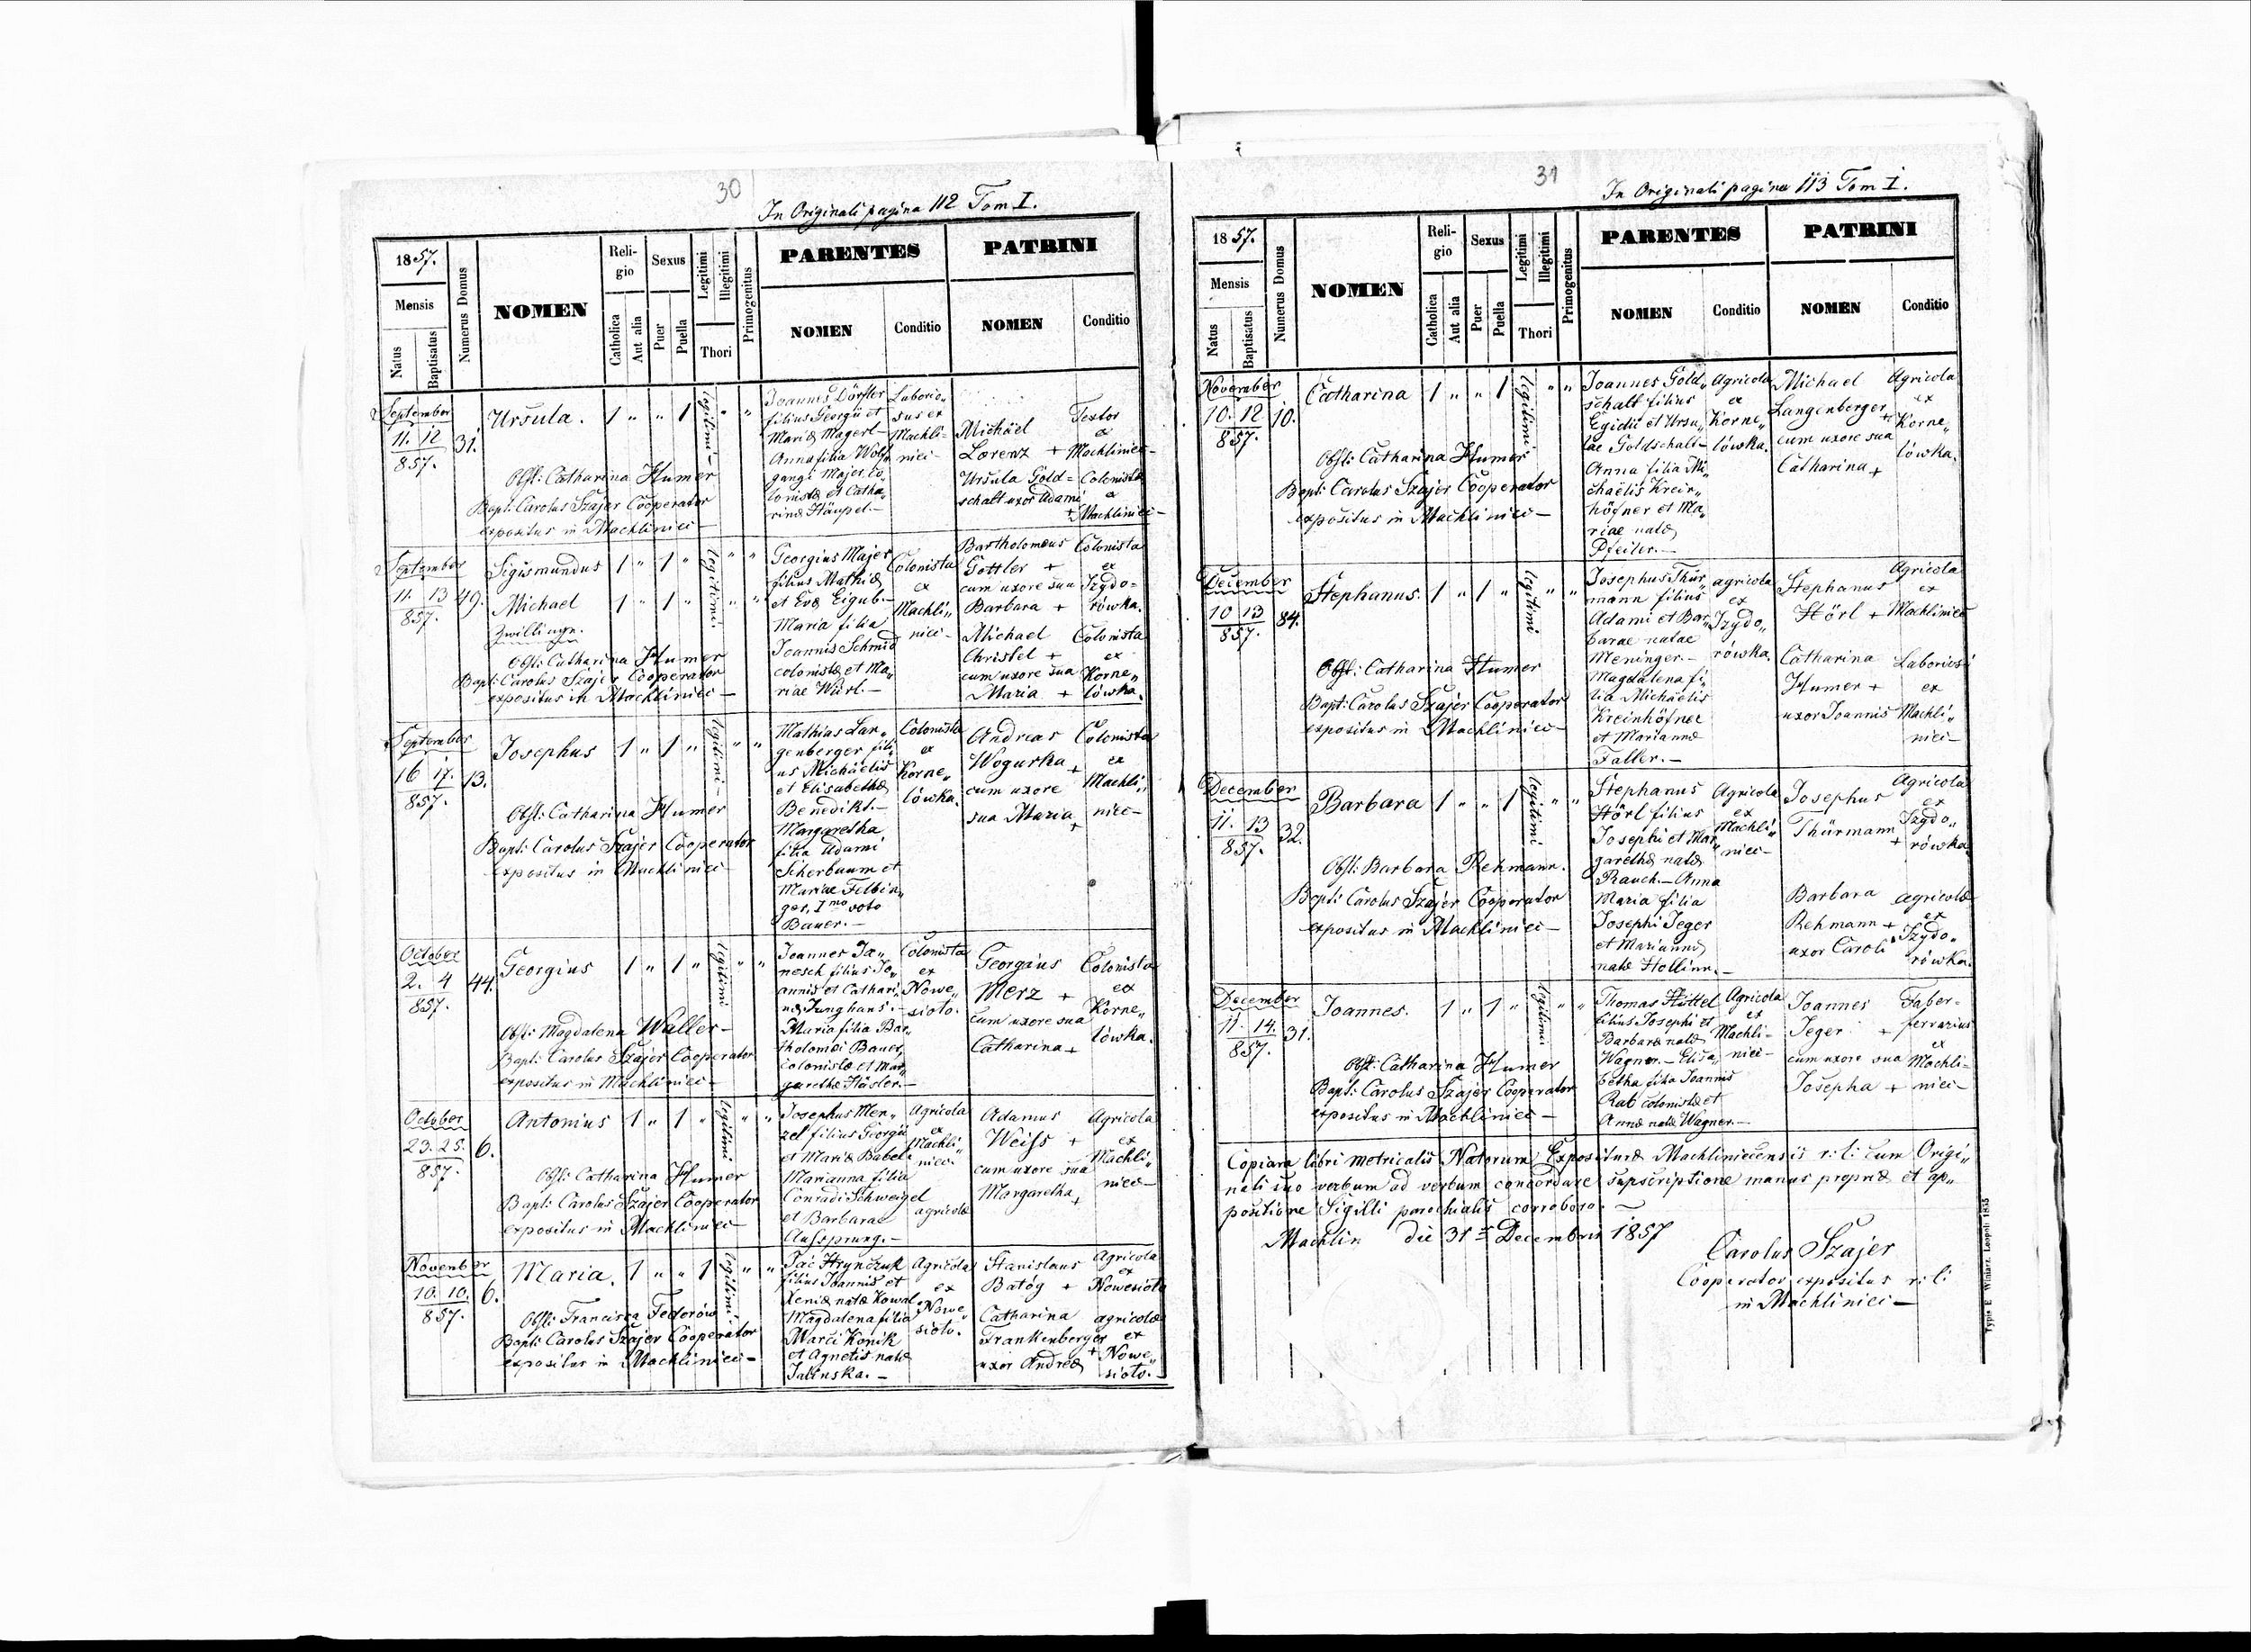 30
In Originali pagina 112 Tom I.
1857.
Mensis
Natus
Baptisatus
Numerus Domus
NOMEN
Reli-
gio
Catholica
Aut alia
Sexus
Puer
Puella
Legitimi
Illegitimi
Thori
Primogenitus
PARENTES
NOMEN
Conditio
PATRINI
NOMEN
Conditio
September
11. 12
857.
31.
Ursula.
1 " " 1
legitimi
" "
Obst: Catharina Humer
Bapt: Carolus Szajer Cooperator
expositus in Machliniec—
Joannes Dörfler
filius Georgii et
Mariæ Magerl—
Anna filia Wolf„
gangi Majer co„
lonistæ et Catha„
rinæ Häupel.—
Laborio„
sus ex
Machli-
niec—
Michael
Lorenz +
Ursula Gold=
schalt uxor Adami
+
Textor
ex
Machliniec—
Colonistæ
ex
Machliniec—
September
11. 13
857.
49.
Sigismundus
1 " 1 "
Michael
1 " 1 "
legitimi
" "
" "
Zwillinge.
Obst: Catharina Humer
Bapt: Carolus Szajer Cooperator
expositus in Machliniec—
Georgius Majer
filius Mathiæ
et Evæ Eigub.—
Maria filia
Joannis Schmid
colonistæ et Ma„
riae Würl.—
Colonista
ex
Machli„
niec—
Bartholomeus
Gottler +
cum uxore sua
Barbara +
Michael
Christel +
cum uxore sua
Maria +
Colonista
ex
Izydo=
rówka.
Colonista
ex
Korne„
lówka.
September
16 17.
857.
13.
Josephus
1 " 1 "
legitimi—
" "
Obst: Catharina Humer
Bapt: Carolus Szajer Cooperator
expositus in Machliniec—
Mathias Lan„
genberger fili„
us Michaelis
et Elisabethæ
Benedikt.—
Margaretha
filia Adami
Scherbaum et
Mariae Felbin„
ger, I mo voto
Bauer.—
Colonista
ex
Korne„
lówka.
Andreas
Wogurka +
cum uxore
sua Maria
+
Colonista
ex
Machli„
niec—
October
2. 4
857.
44.
Georgius
1 " 1 "
legitimi
" "
Obst: Magdalena Waller—
Bapt: Carolus Szajer Cooperator
expositus in Machliniec—
Joannes Ja„
nesch filius Jo„
annis et Cathari„
næ Junghans.—
Maria filia Bar„
tholomæi Bauer,
colonistæ et Mar„
garethæ Häsler.—
Colonista
ex
Nowe„
sioło.
Georgius
Merz +
cum uxore sua
Catharina +
Colonista
ex
Korne„
lówka.
October
23. 25.
857.
6.
Antonius
1 " 1 "
legitimi
" "
Obst: Catharina Humer
Bapt: Carolus Szajer Cooperator
expositus in Machliniec
Josephus Men„
zel filius Georgii
et Mariæ Babel.
Marianna filia
Conradi Schweigel
et Barbarae
Aufsprung.—
Agricola
ex
Machli„
niec.
agricolæ
Adamus
Weiss +
cum uxore sua
Margaretha
+
Agricola
ex
Machli„
niec—
November
10. 10.
857.
6.
Maria.
1 " " 1
legitimi
" "
Obst: Francisca Fedorów
Bapt: Carolus Szajer Cooperator
expositus in Machliniec—
Jac Hrynczuk
filius Joannis et
Xeniæ natæ Kowal.
Magdalena filia
Marci Konik
et Agnetis natæ
Jalinska.—
Agricola
ex
Nowe„
sioło.
Stanislaus
Batóg +
Catharina
Frankenberger
+
uxor Andreæ
Agricola
ex
Nowesioło
agricolæ
ex
Nowe„
sioło.—
31
In Originali pagina 113 Tom I.
1857.
Mensis
Natus
Baptisatus
Numerus Domus
NOMEN
Reli-
gio
Catholica
Aut alia
Sexus
Puer
Puella
Legitimi
Illegitimi
Thori
Primogenitus
PARENTES
NOMEN
Conditio
PATRINI
NOMEN
Conditio
November
10. 12
857.
10.
Catharina
1 " " 1
legitimi
" "
Obst: Catharina Humer
Bapt: Carolus Szajer Cooperator
expositus in Machliniec—
Joannes Gold„
schalt filius
Egidii et Ursu„
lae Goldschalt—
Anna filia Mi„
chaelis Krein„
höfner et Ma„
riae natæ
Pfeiler.—
Agricola
ex
Korne„
lówka.
Michael
Langenberger +
cum uxore sua
Catharina +
Agricola
ex
Korne„
lówka.
December
10 13
857.
84.
Stephanus.
1 " 1 "
legitimi
" "
Obst: Catharina Humer
Bapt: Carolus Szajer Cooperator
expositus in Machliniec—
Josephus Thür„
mann filius
Adami et Bar„
barae natae
Meninger.—
Magdalena fi„
lia Michaelis
Kreinhöfner
et Mariannæ
Faller.—
agricola
ex
Izydo„
rówka.
Stephanus
Hörl +
Catharina
Humer +
uxor Joannis
Agricola
ex
Machliniec
Laboriosi
ex
Machli„
niec—
December
11. 13
857.
32.
Barbara
1 " " 1
legitimi
" "
Obst: Barbara Rehmann.
Bapt: Carolus Szajer Cooperator
expositus in Machliniec—
Stephanus
Hörl filius
Josephi et Mar„
garethæ natæ
Rauch.—Anna
Maria filia
Josephi Jeger
et Mariannæ
natæ Hollinn.—
Agricola
ex
Machli„
niec—
Josephus
Thürmann
+
Barbara
Rehmann +
uxor Caroli
Agricola
ex
Izydo„
rówka.
agricolæ
ex
Izydo„
rówka.
December
11. 14.
857.
31.
Joannes.
1 " 1 "
legitimi
" "
Obst: Catharina Humer
Bapt: Carolus Szajer Cooperator
expositus in Machliniec—
Thomas Hüttel
filius Josephi et
Barbaræ natæ
Wagner.—Elisa„
betha filia Joannis
Rab colonistæ et
Annæ natæ Wagner.—
Agricola
ex
Machli-
niec—
Joannes
Jeger +
cum uxore sua
Josepha +
Faber-
ferrarius
ex
Machli=
niec—
Copiam libri metricalis Natorum Expositurae Machliniecensis r: l: cum Origi„
nali suo verbum ad verbum concordare supscriptione manus propriæ et ap„
positione Sigilli parochialis corroboro.—
Machlin die 31 Decembris 1857
Carolus Szajer
Cooperator expositus r: l:
in Machliniec—
Typis E. Winiarz. Leopoli 1855